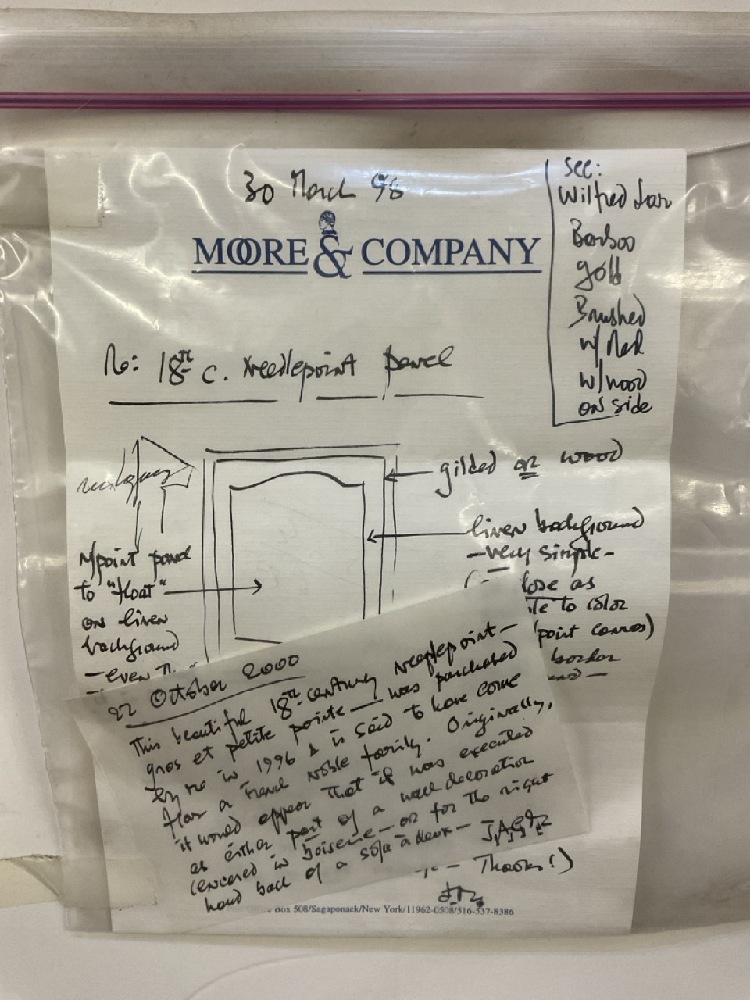 30 March 98
MOORE & COMPANY
see:
Wilfred
Bamboo
gold
Brushed
w/ Red
w/wood
on side
Re: 18th c. Needlepoint panel
gilded or wood
linen background
- very simple -
close as
to color
point canvas)
N/point panel
to "float"
on linen
background
- even
22 October 2000
This beautiful 18th century needlepoint -
gros et petite pointe - was purchased
by me in 1996 & is said to have come
from a French noble family. Originally,
it would appear that it was executed
as either part of a wall decoration
(encased in boiserie - or for the right
hand back of a sofa à deux -
Thanks!)
Box 508/Sagaponack/New York/11962-0508/516-537-8386